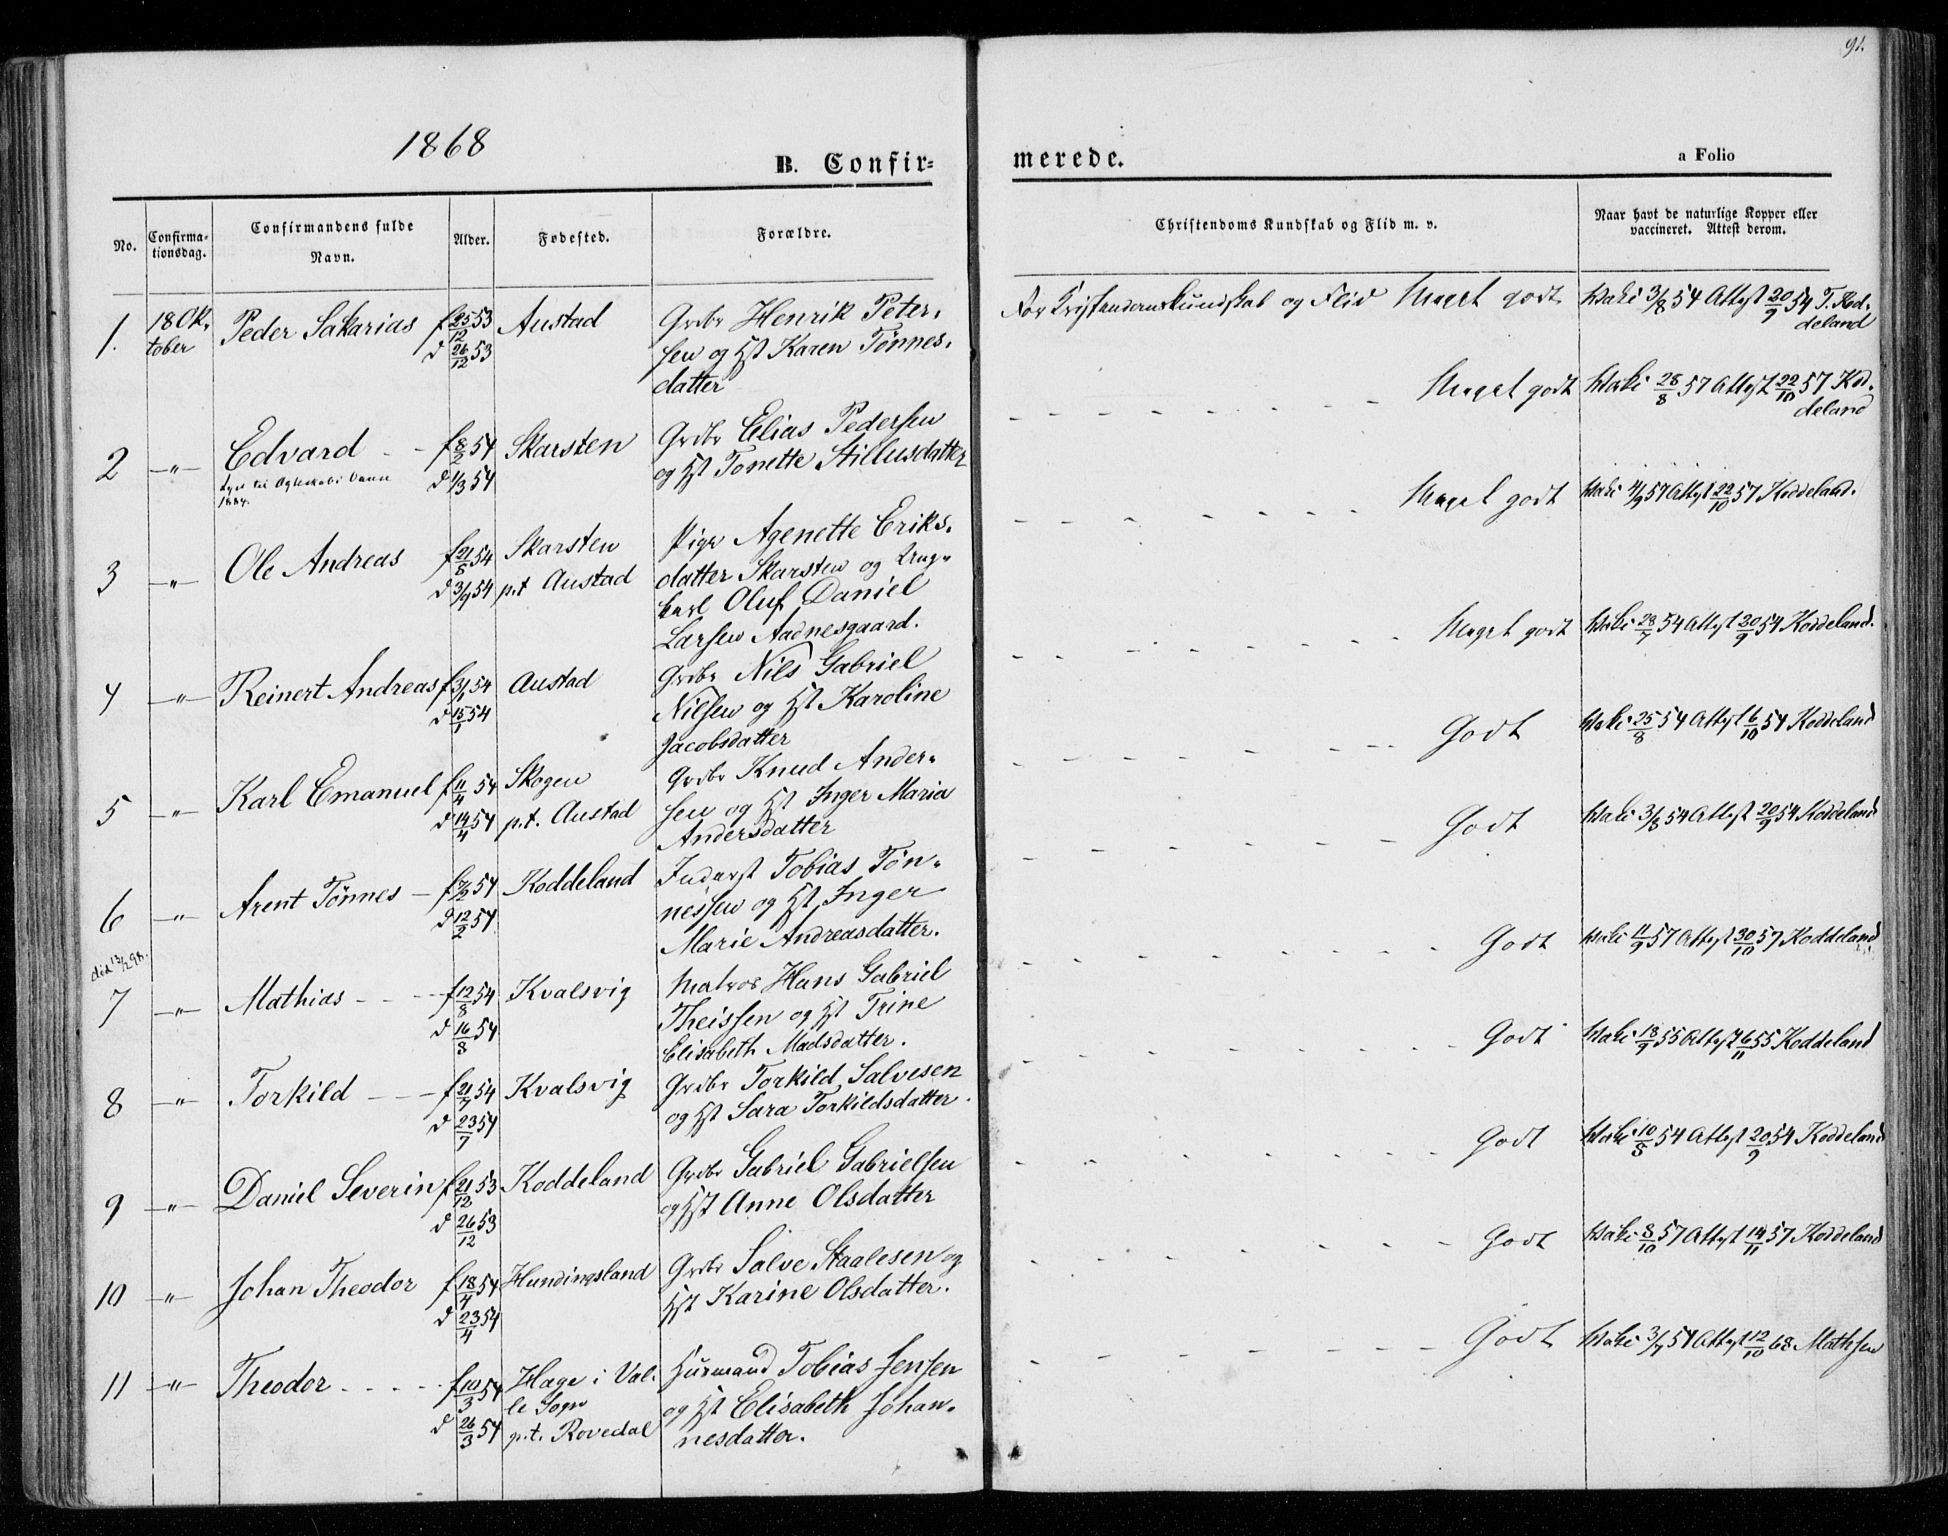 91.
1868
B. Confirmerede.
a Folio
No.
Confirmationsdag.
Confirmandens fulde Navn.
Alder.
Fødested.
Forældre.
Christendoms Kundskab og Flid m. v.
Naar havt de naturlige Kopper eller
vaccineret. Attest derom.
1. 18 Oktober Peder Sakarias f 25/12 53 d 26/12 53 Austad
Grdbr Henrik Petersen
og Hst Karen Tønnesdatter
For Kristendomskundskab og Flid Meget godt
Vaks 3/8 54 Attest 20/9 54 T. Koddeland
2 -"- Edvard - - f 8/2 54 d 1/3 54 Skarsten
1884.
Grdbr Elias Pedersen
og Hst Tonette Stillusdatter
Meget godt
Vaks 28/8 57 Attest 22/10 57 Koddeland
3 -"- Ole Andreas f 21/8 54 d 3/9 54 Skarsten
p.t. Austad
Pige Agenette Eriksdatter
Skarsten og Ungkarl
Oluf Daniel
Larsen Aadnesgaard.
Meget godt
Vaks 4/9 57 Attest 22/10 57 Koddeland.
4 -"- Reinert Andreas f 3/1 54 d 15/1 54 Austad
Grdbr Nils Gabriel
Nilsen og Hst Karoline
Jacobsdatter
Meget godt
Vaks 28/7 54 Attest 20/9 54 Koddeland.
5 -"- Karl Emanuel f 11/4 54 d 14/4 54 Skogen
p.t. Austad
Grdbr Knud Andersen
og Hst Inger Maria
Andersdatter
Godt
Vaks 25/8 54 Attest 6/10 54 Koddeland
6 -"- Arent Tønnes - f 7/2 54 d 12/2 54 Koddeland
Inderst Tobias Tønnessen
og Hst Inger
Marie Andreasdatter.
Godt
Vaks 3/8 54 Attest 20/9 54 Koddeland
7 -"- Mathias - - - f 12/8 54 d 16/8 54 Kvalsvig
Matros Hans Gabriel
Theissen og Hst Trine
Elisabeth Madsdatter.
Godt
Vaks 11/9 57 Attest 30/10 57 Koddeland
8 -"- Torkild - - - f 21/7 54 d 23/7 54 Kvalsvig
Grdbr Torkild Salvesen
og Hst Sara Torkildsdatter.
Godt
Vaks 18/9 55 Attest 6/11 55 Koddeland
9 -"- Daniel Severin f 21/12 53 d 26/12 53 Koddeland
Grdbr Gabriel Gabrielsen
og Hst Anne Olsdatter
Godt
Vaks 10/8 54 Attest 20/9 54 Koddeland
10 -"- Johan Theodor f 18/4 54 d 23/4 54 Hundingsland
Grdbr Salve Staalesen og
Hst Karine Olsdatter.
Godt
Vaks 8/10 57 Attest 14/11 57 Koddeland
11 -"- Theodor - - - - f 10/3 54 d 26/3 54 Hage i Valle
Sogn
p.t. Rovedal
Husmand Tobias Jensen
og Hst Elisabeth Johannesdatter.
Godt
Vaks 3/7 54 Attest 12/10 68 Mathsen